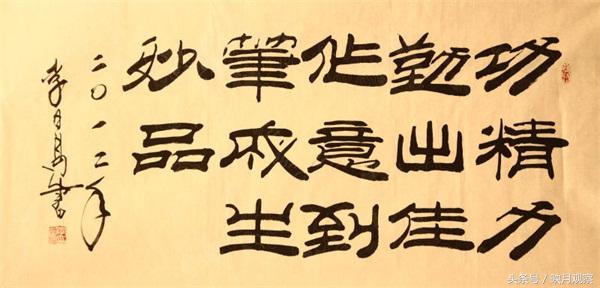 功精力
勤出佳
作意到
筆成生
妙品
二〇一二年
李日書
头条号 / 映月观察